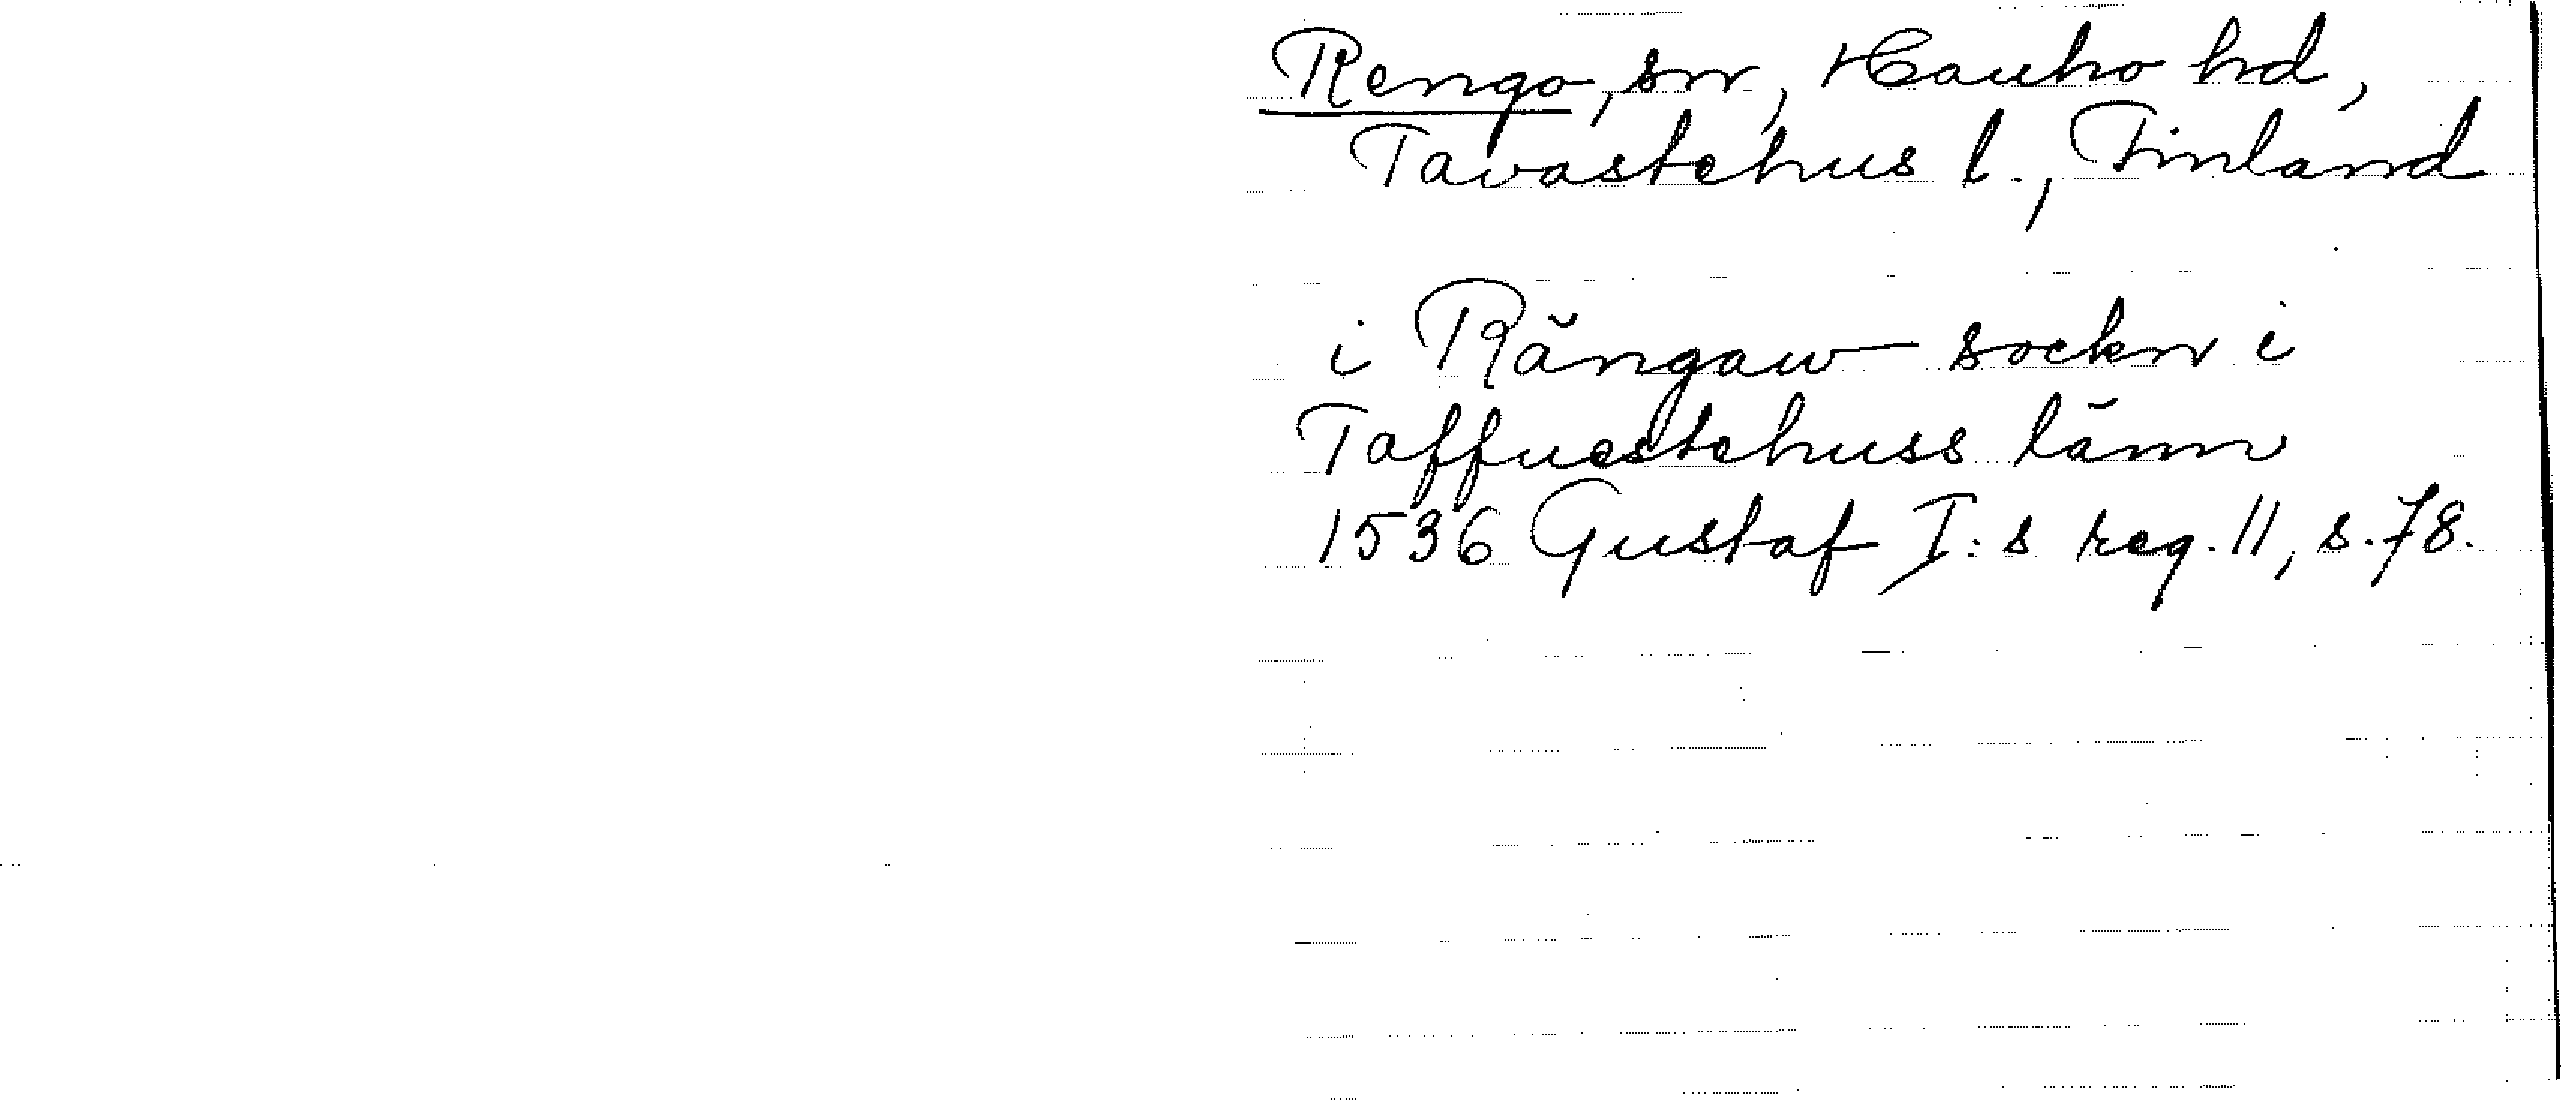 Rengo, sn, Hauho hd,
Tavastehus l., Finland
i Rängaw sockn i
Taffuestehuss län
1536 Gustaf I:s reg. 11, s. 78.